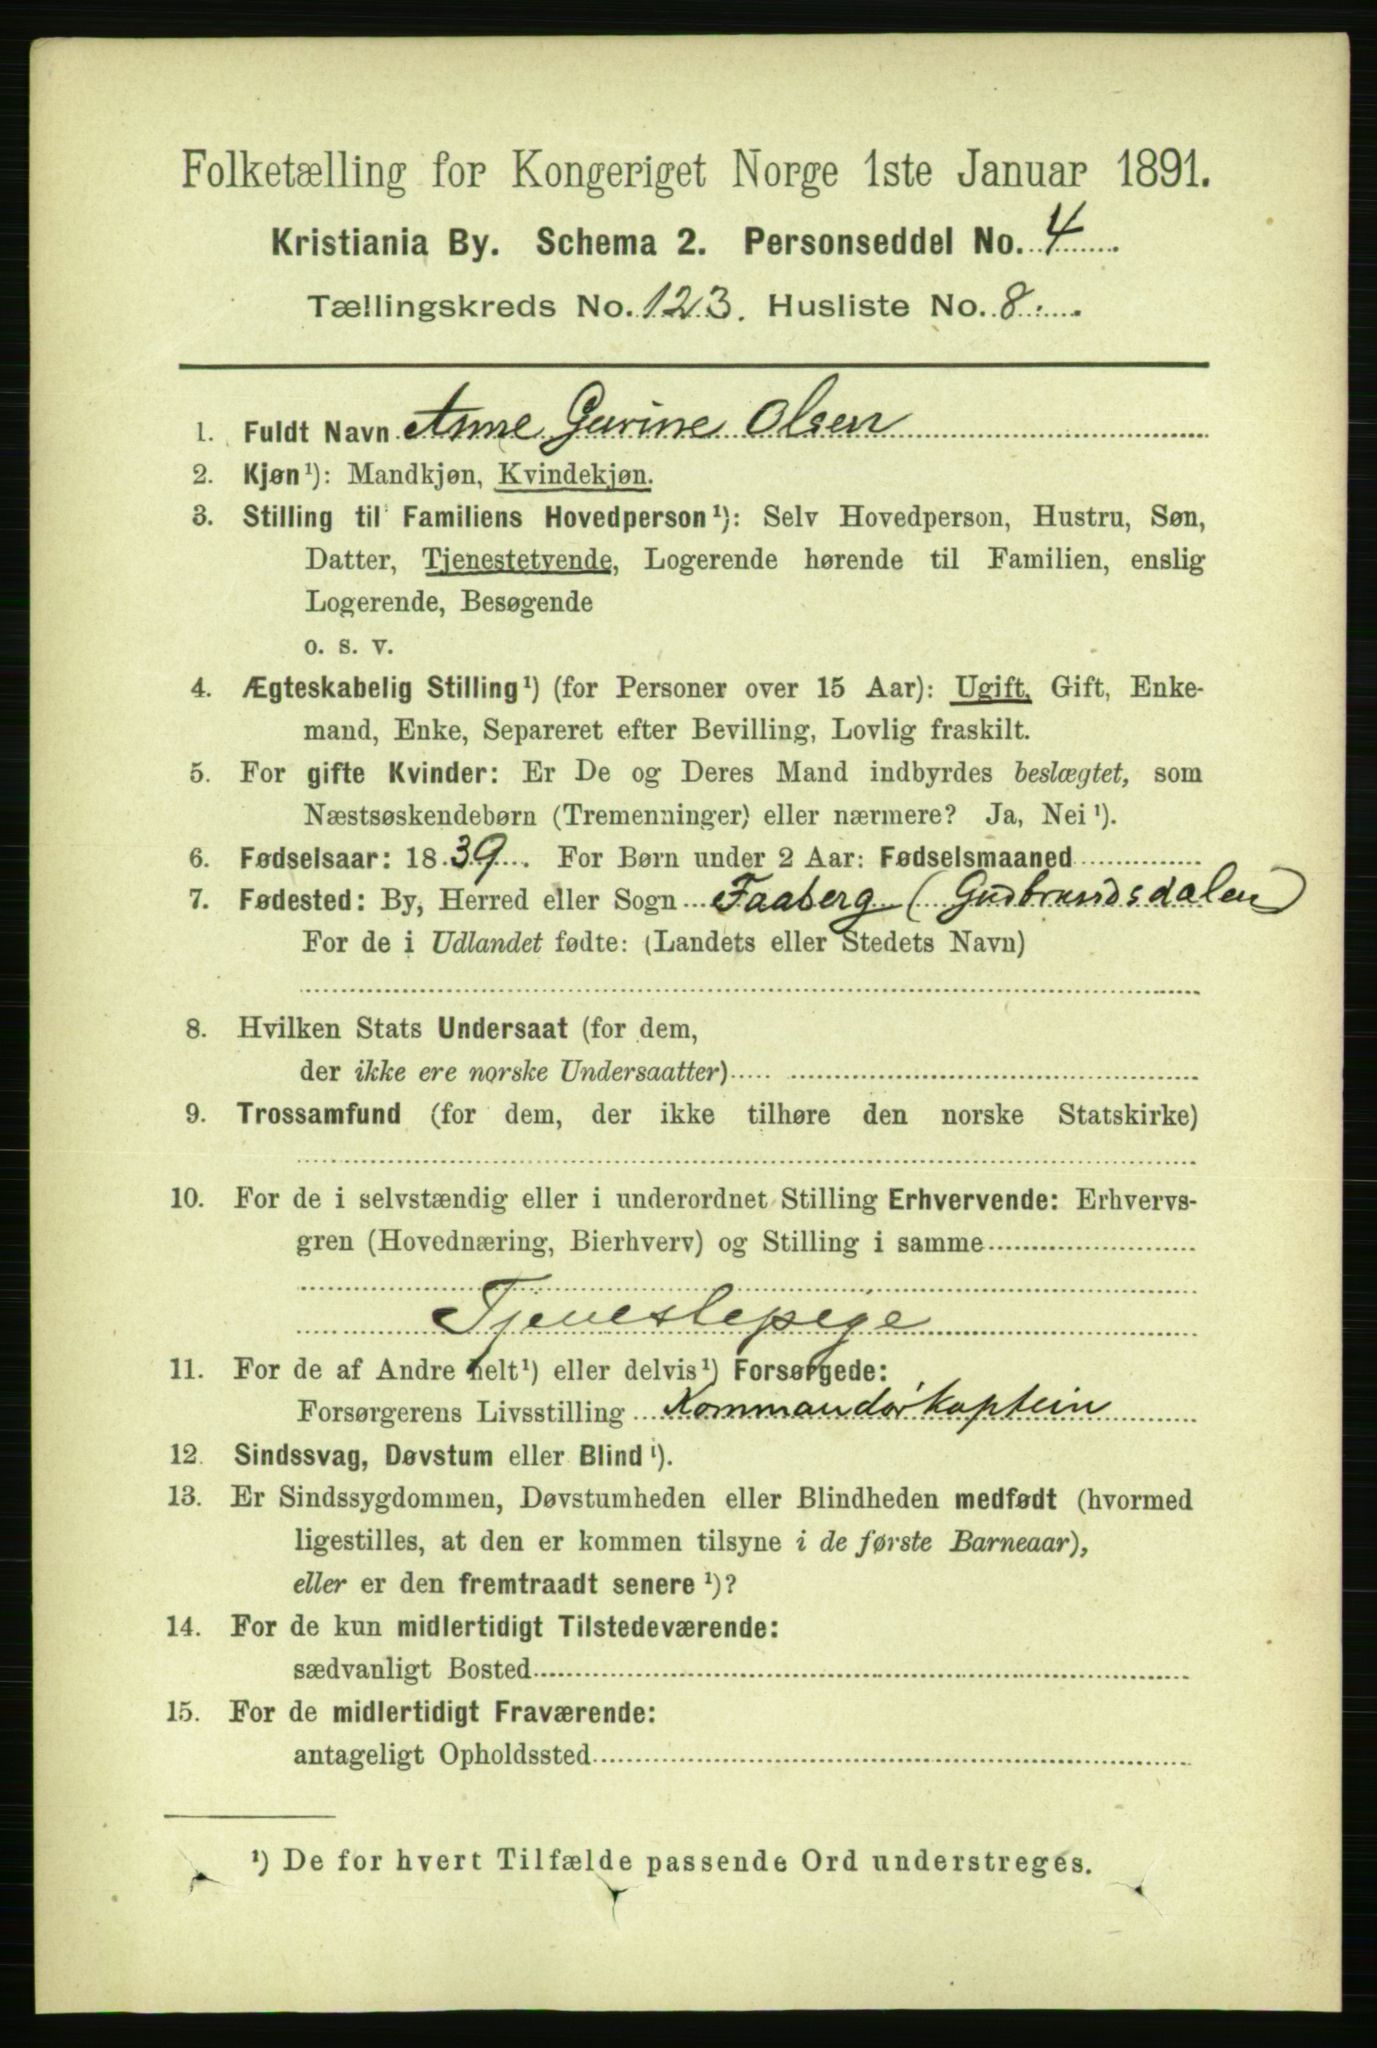 Folketælling for Kongeriget Norge 1ste Januar 1891.
Kristiania By. Schema 2. Personseddel No. 4
Tællingskreds No. 123. Husliste No. 8.
1. Fuldt Navn Anne Gurine Olsen
2. Kjøn¹): Mandkjøn, Kvindekjøn.
3. Stilling til Familiens Hovedperson¹): Selv Hovedperson, Hustru, Søn,
Datter, Tjenestetyende, Logerende hørende til Familien, enslig
Logerende, Besøgende
o. s. v.
4. Ægteskabelig Stilling¹) (for Personer over 15 Aar): Ugift, Gift, Enke-
mand, Enke, Separeret efter Bevilling, Lovlig fraskilt.
5. For gifte Kvinder: Er De og Deres Mand indbyrdes beslægtet, som
Næstsøskendebørn (Tremenninger) eller nærmere? Ja, Nei¹).
6. Fødselsaar: 1839. For Børn under 2 Aar: Fødselsmaaned
7. Fødested: By, Herred eller Sogn Faaberg (Gudbrandsdalen)
For de i Udlandet fødte: (Landets eller Stedets Navn)
8. Hvilken Stats Undersaat (for dem,
der ikke ere norske Undersaatter)
9. Trossamfund (for dem, der ikke tilhøre den norske Statskirke)
10. For de i selvstændig eller i underordnet Stilling Erhvervende: Erhvervs-
gren (Hovednæring, Bierhverv) og Stilling i samme
Tjenestepige
11. For de af Andre helt¹) eller delvis¹) Forsørgede:
Forsørgerens Livsstilling Kommandørkaptein
12. Sindssvag, Døvstum eller Blind¹).
13. Er Sindssygdommen, Døvstumheden eller Blindheden medfødt (hvormed
ligestilles, at den er kommen tilsyne i de første Barneaar),
eller er den fremtraadt senere¹)?
14. For de kun midlertidigt Tilstedeværende:
sædvanligt Bosted
15. For de midlertidigt Fraværende:
antageligt Opholdssted
¹) De for hvert Tilfælde passende Ord understreges.